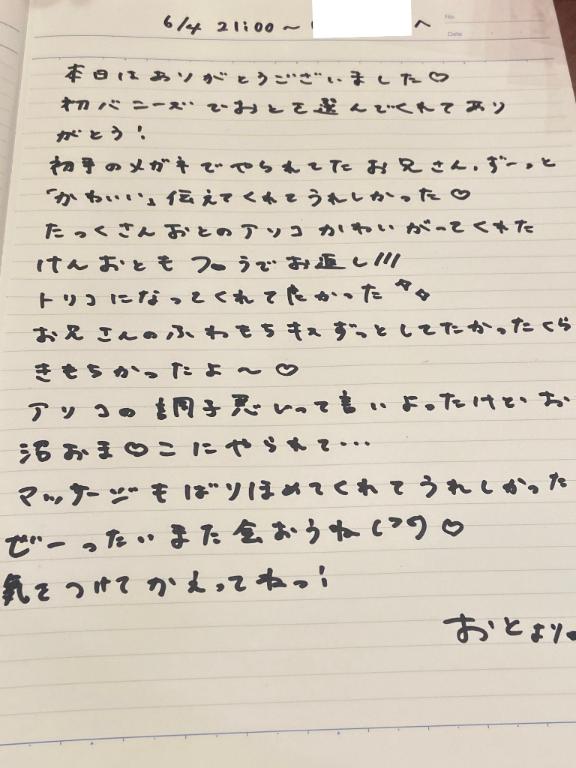 6/4 21:00〜 へ
No.
Date
本日はありがとうございました♡
初バニーズでおとを選んでくれてあり
がとう!
初手のメガネでやられてたお兄さん、ずーっと
「かわいい」伝えてくれてうれしかった♡
たっくさんおとのアソコかわいがってくれた
けんおともフェラでお返し///
トリコになってくれてたかった
お兄さんのふわもちキスずっとしてたかったくら
きもちかったよ〜♡
アソコの調子悪いって言いよったけど、お
沼おま♡こにやられて…
マッサージもばりほめてくれてうれしかった
ぜーったいまた会おうね(^^)♡
気をつけてかえってねっ!
おとより